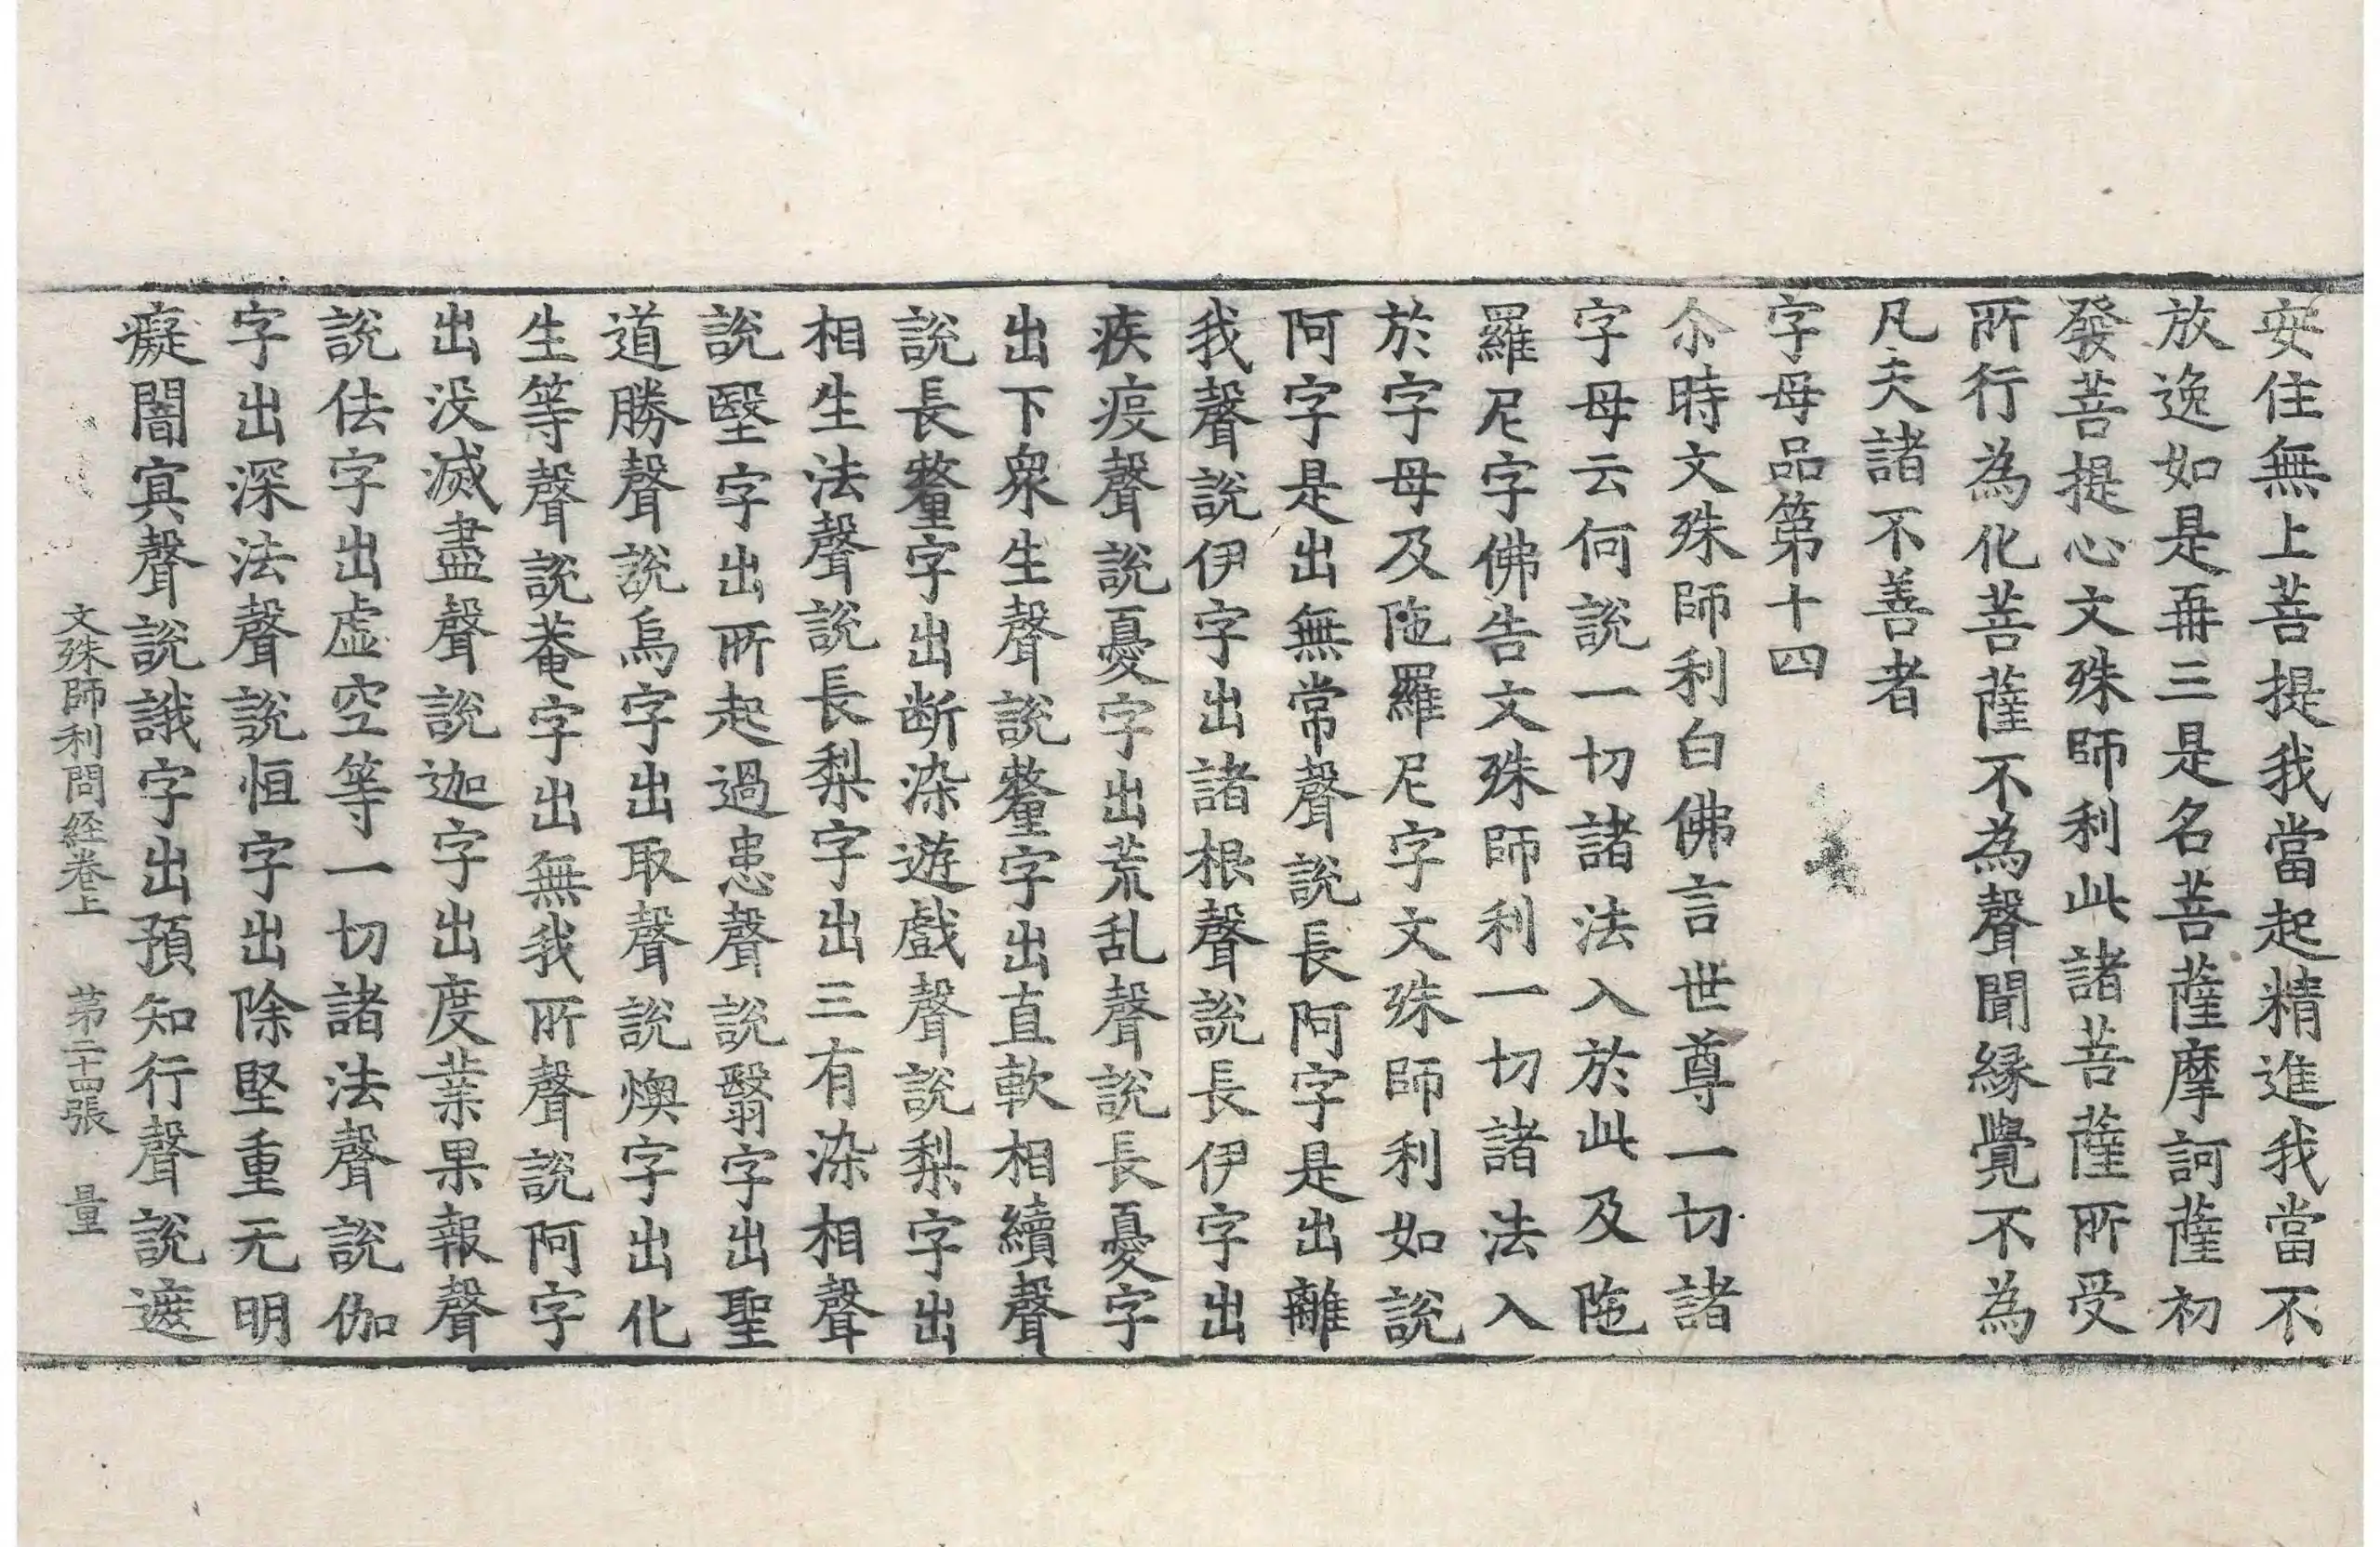 安住無上菩提我當起精進我當不
放逸如是再三是名菩薩摩訶薩初
發菩提心文殊師利此諸菩薩所受
所行為化菩薩不為聲聞緣覺不為
凡夫諸不善者
字母品第十四
尒時文殊師利白佛言世尊一切諸
字母云何說一切諸法入於此及陁
羅尼字佛告文殊師利一切諸法入
於字母及陁羅尼字文殊師利如說
阿字是出無常聲說長阿字是出離
我聲說伊字出諸根聲說長伊字出
疾疫聲說憂字出荒乱聲說長憂字
出下衆生聲說釐字出直軟相續聲
說長釐字出断染遊戲聲說梨字出
相生法聲說長梨字出三有染相聲
說堅字出所起過患聲說翳字出聖
道勝聲說烏字出取聲說燠字出化
生等聲說菴字出無我所聲說阿字
出没滅盡聲說迦字出度業果報聲
說佉字出虛空等一切諸法聲說伽
字出深法聲說恒字出除堅重无明
癡闇寘聲說誐字出預知行聲說遮
文殊師利問経卷上　第二十四張　量